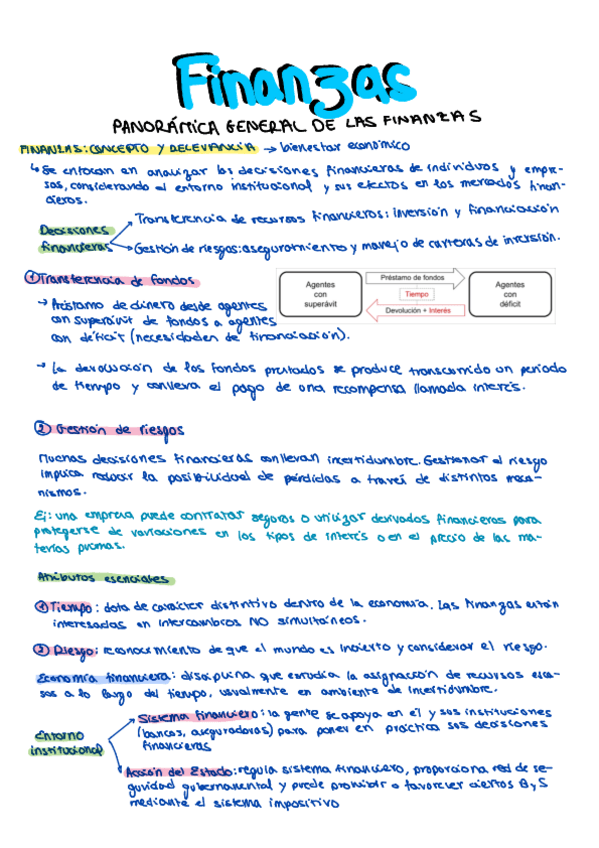 Finanzas
PANORÁMICA GENERAL DE LAS FINANZAS
FINANZAS: CONCEPTO Y RELEVANCIA → bienestar económico
↳ Se enfocan en analizar las decisiones financieras de individuos y empre-
sas, considerando el entorno institucional y sus efectos en los mercados finan-
cieros.
Transferencia de recursos financieros: inversión y financiación
Decisiones
financieras
Gestión de riesgos: aseguramiento y manejo de carteras de inversión.
① Transferencia de fondos
→ Préstamo de dinero desde agentes
con superávit de fondos a agentes
con déficit (necesidades de financiación).
Agentes
con
superávit
Préstamo de fondos
Tiempo
Devolución + Interés
Agentes
con
déficit
→ La devolución de los fondos prestados se produce transcurrido un periodo
de tiempo y conlleva el pago de una recompensa llamada interés.
② Gestión de riesgos
Muchas decisiones financieras conllevan incertidumbre. Gestionar el riesgo
implica reducir la posibilidad de pérdidas a través de distintos meca-
nismos.
Ej: una empresa puede contratar seguros o utilizar derivados financieros para
protegerse de variaciones en los tipos de interés o en el precio de las ma-
terias primas.
Atributos esenciales
① Tiempo: dota de carácter distintivo dentro de la economía. Las finanzas están
interesadas en intercambios NO simultáneos.
② Riesgo: reconocimiento de que el mundo es incierto y considerar el riesgo.
Economía financiera: disciplina que estudia la asignación de recursos esca-
sos a lo largo del tiempo, usualmente en ambiente de incertidumbre.
Sistema financiero: la gente se apoya en él y sus instituciones
(bancos, aseguradoras) para poner en práctica sus decisiones
financieras
Entorno
institucional
Acción del Estado: regula sistema financiero, proporciona red de se-
guridad gubernamental y puede prohibir o favorecer ciertos B y S
mediante el sistema impositivo